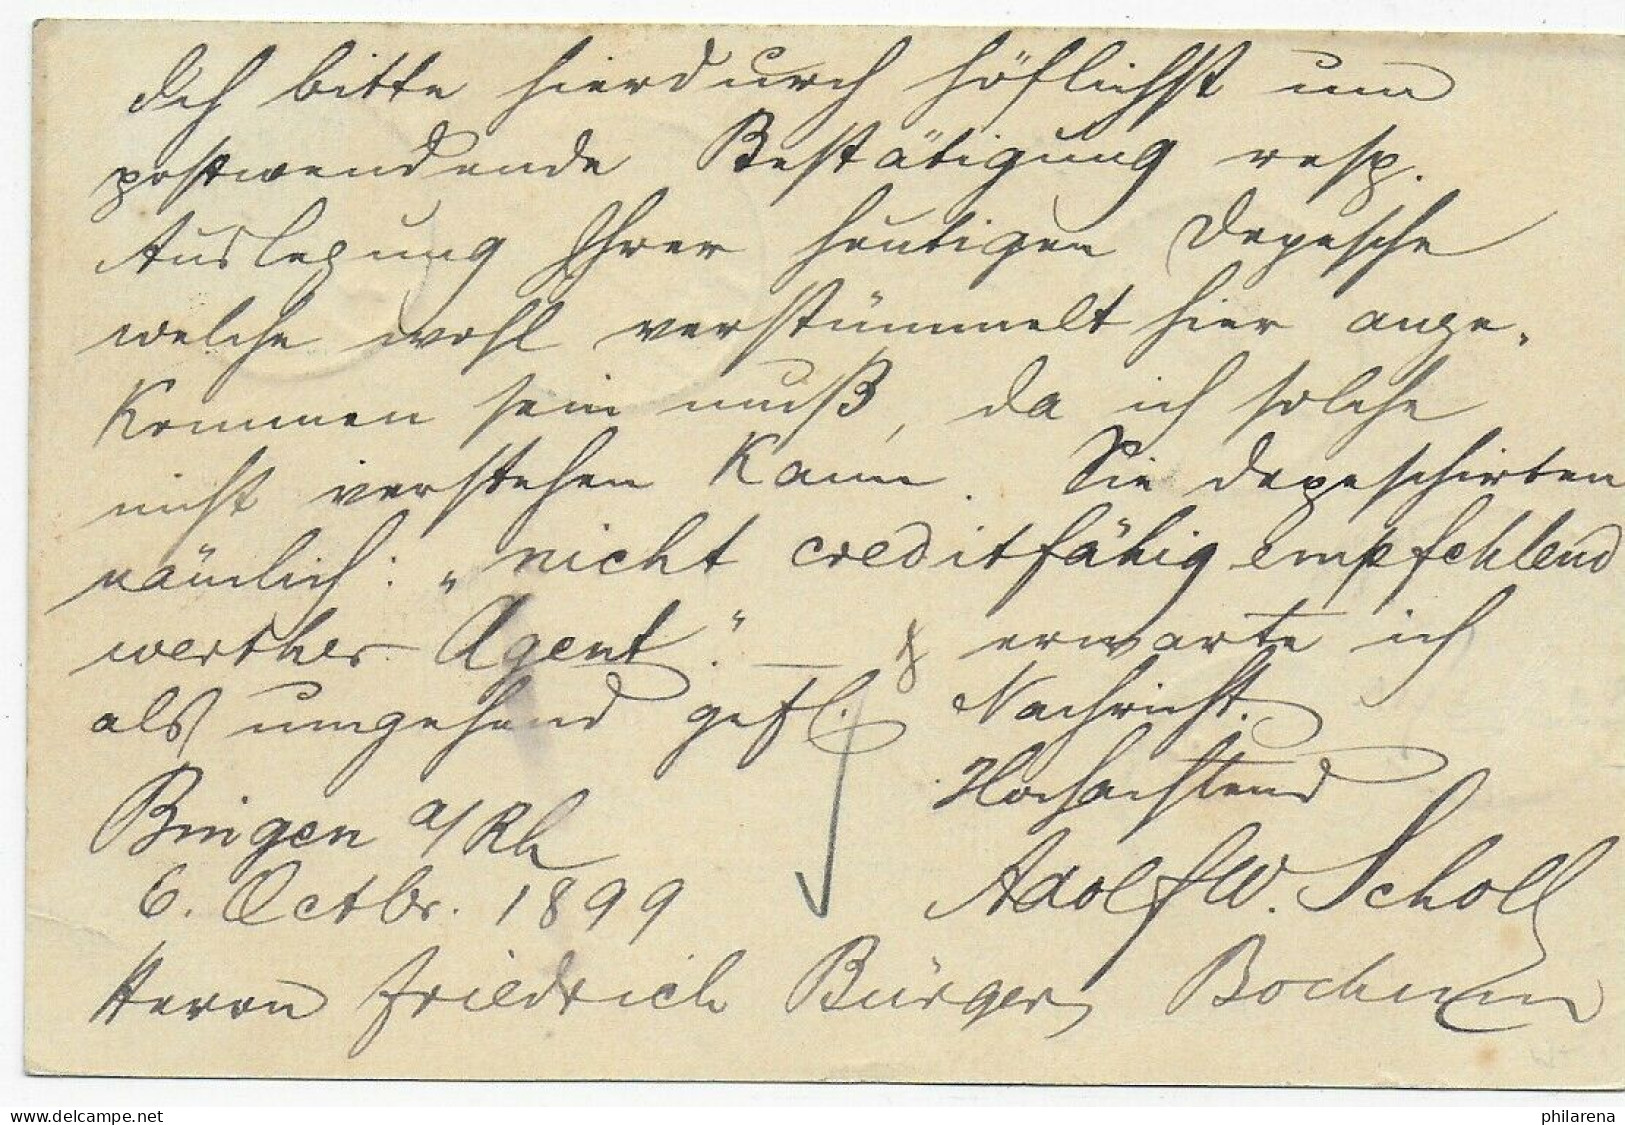 Ich bitte hierdurch höflichst um
postwendende Bestätigung resp.
Auslegung Ihrer heutigen Depesche
welche wohl verstümmelt hier ange-
kommen sein muß, da ich solche
nicht verstehen kann. Sie depeschirten
nämlich: „nicht creditfähig empfehlend
werther Agent." — & erwarte ich
als umgehend gefl. Nachricht.
Hochachtend
Bingen a/Rh
6. Octbr. 1899
Adolf W. Scholl
Herrn Friedrich Bürger, Bochum
philarena.com
philarena